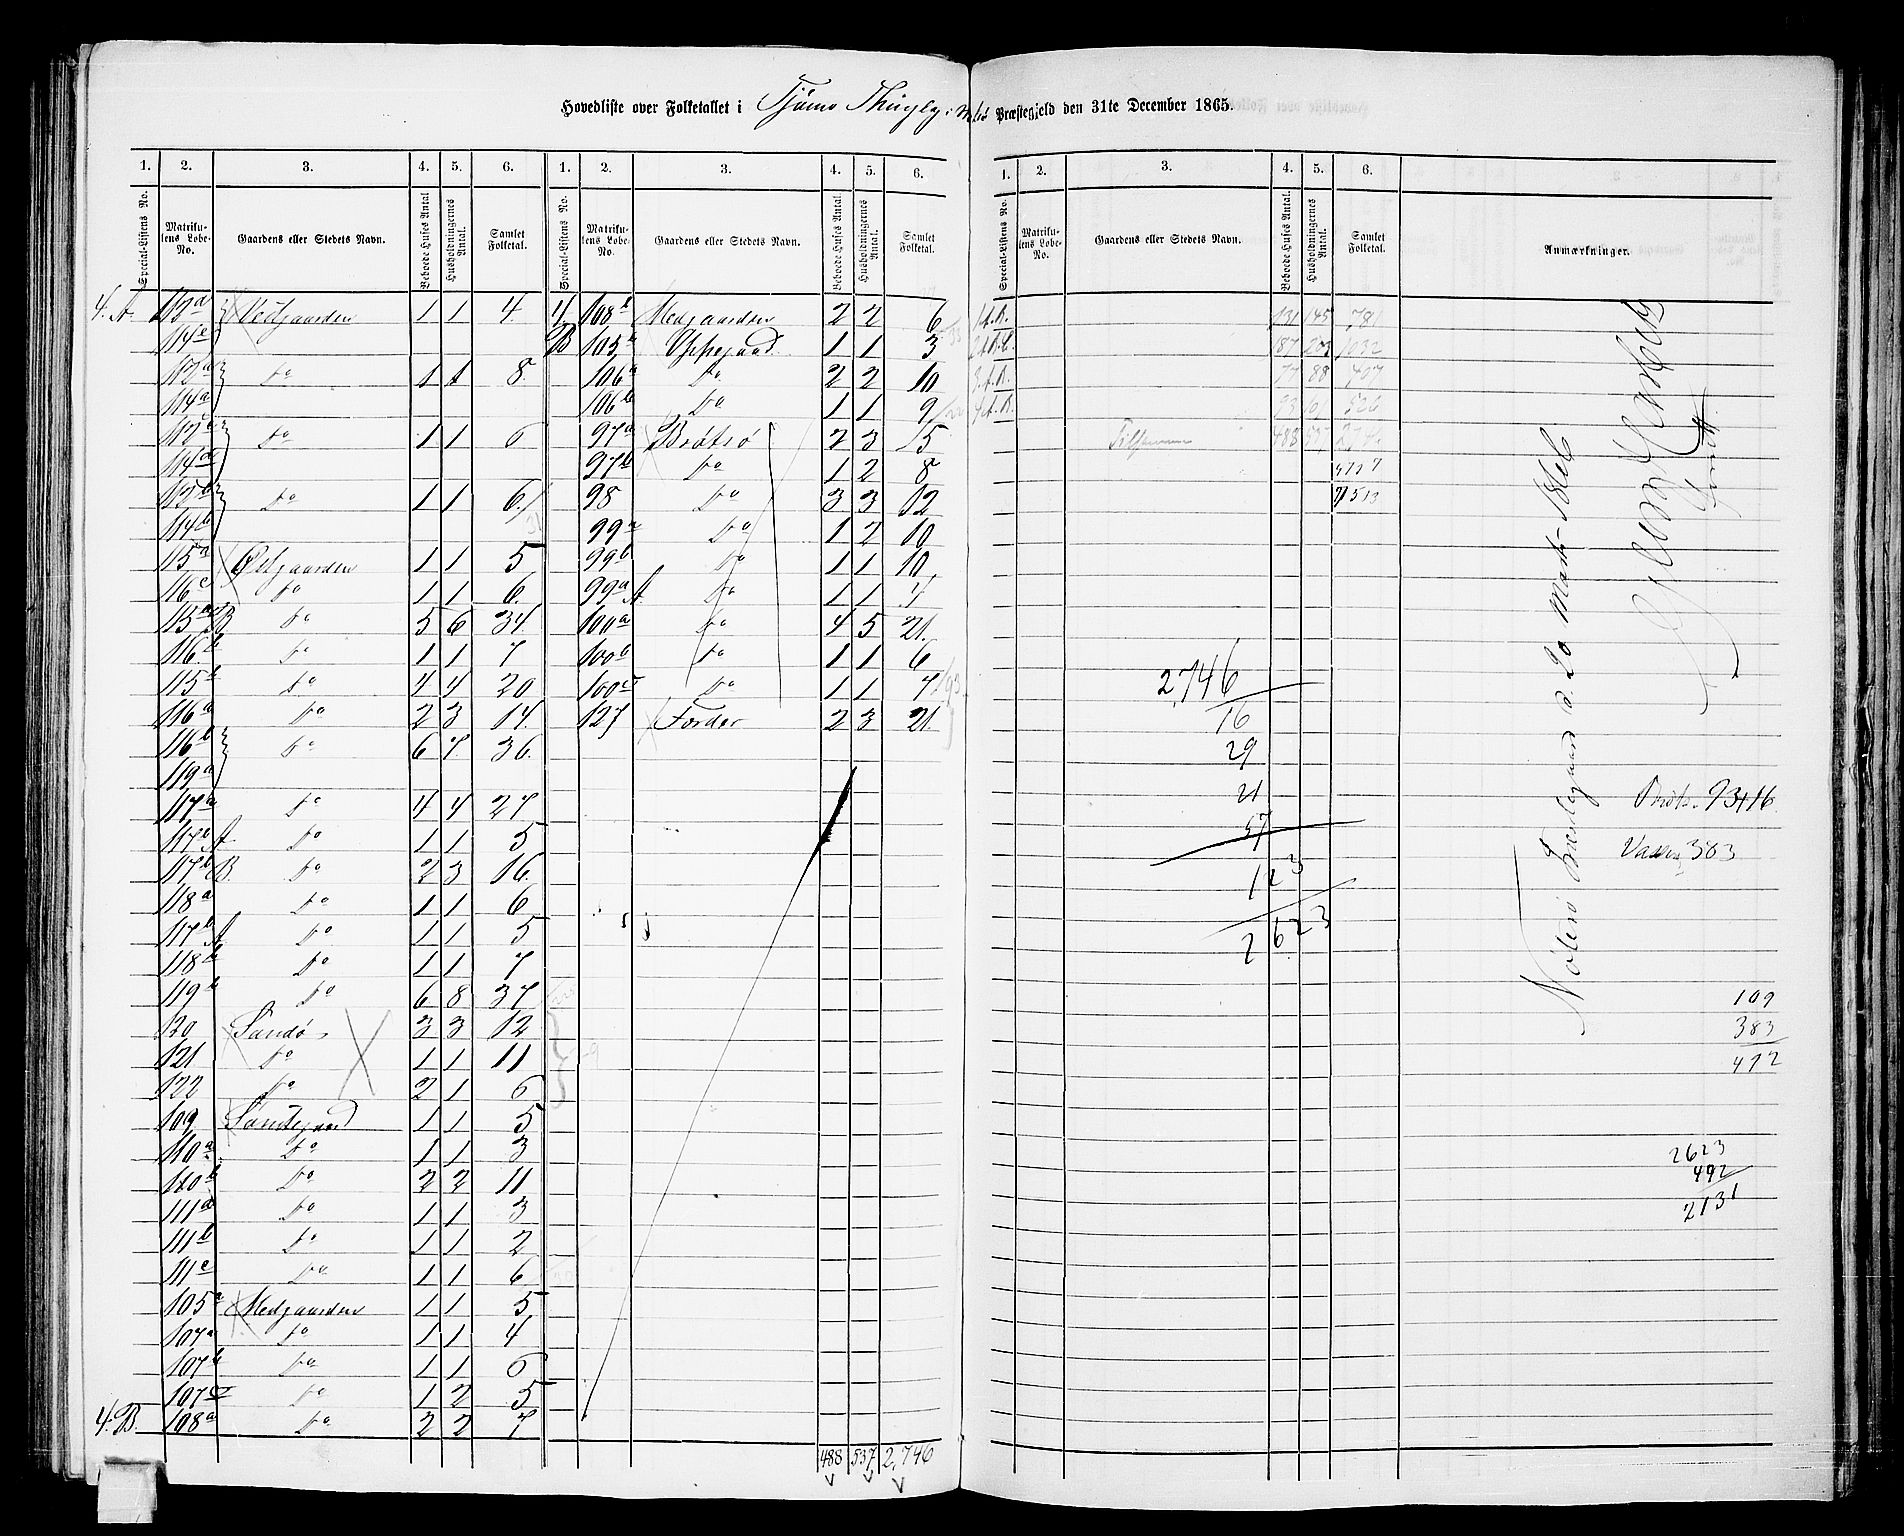 Hovedliste over Folketallet i Tjømø Thinglag i Nøterø Præstegjeld den 31te December 1865.
1. 2. 3. 4. 5. 6. 1. 2. 3. 4. 5. 6.
Special-Listens No. Matrikulens Løbe-No. Gaardens eller Stedets Navn. Beboede Huses Antal. Husholdningernes Antal. Samlet Folketal. Special-Listens No. Matrikulens Løbe-No. Gaardens eller Stedets Navn. Beboede Huses Antal. Husholdningernes Antal. Samlet Folketal.
4. A. 113a 1 1 4.
114e
112a do 1 1 8.
114a
112c do 1 1 6
114d
112b do 1 1 6.
114b
115a Østgaarden 1 1 5
116c do 1 1 6.
115a B do 5 6 34.
116b do 1 1 7
115b do 4 4 20
116a do 2 3 14.
116b do 6 7. 36.
119a
117a do 4 4 27
117b A. do 1 1 5
117b B. do 2 3 16.
118a do 1 1 6
117b A do 1 1 5
118b do 1 1 7
119b do 6 8 37
120 Sandø 3 3 12
121 do 1 1 11
122 do 2 1 6
109 1 1 5
110a do 1 1 3
110b do 2 2 11
111a do 1 1 3
111b do 1 1 2
111c do 1 1 6
105a Medgaarden 1 1 5
107a do 1 1 4
107b do 1 1 6
107c do 1 2 5
4. B. 108a do 2 2 7
4 B 108b Medgaarden 2 2 6
105a Uppegaard 1 1 3
106a do 2 2 10
106b do 1 1 9
97a Brøtsø 2 3 15
97b do 1 2 8
98 do 3 3 12
99a do 1 2 10
99b do 1 1 10
99a A. do 1 1 7
100a do 4 5 21.
100b do 1 1 6
100c do 1 1 7
127 Førder 2 3 21.
488 537 2,746
1. 2. 3. 4. 5. 6.
Special-Listens No. Matrikulens Løbe-No. Gaardens eller Stedets Navn. Beboede Huses Antal. Husholdningernes Antal. Samlet Folketal. Anmærkninger.
1 A. B. 131 145 781
2 A. B. C. 187 203 1032
3. A. B. 77 88 407
4 A. B. 93 101 526
Tilsammen 488 537 2746
2,746
16
29
21
57
123
2623
Brøts. 93+16
Vasser 383
109
383
492
2623
492
2131